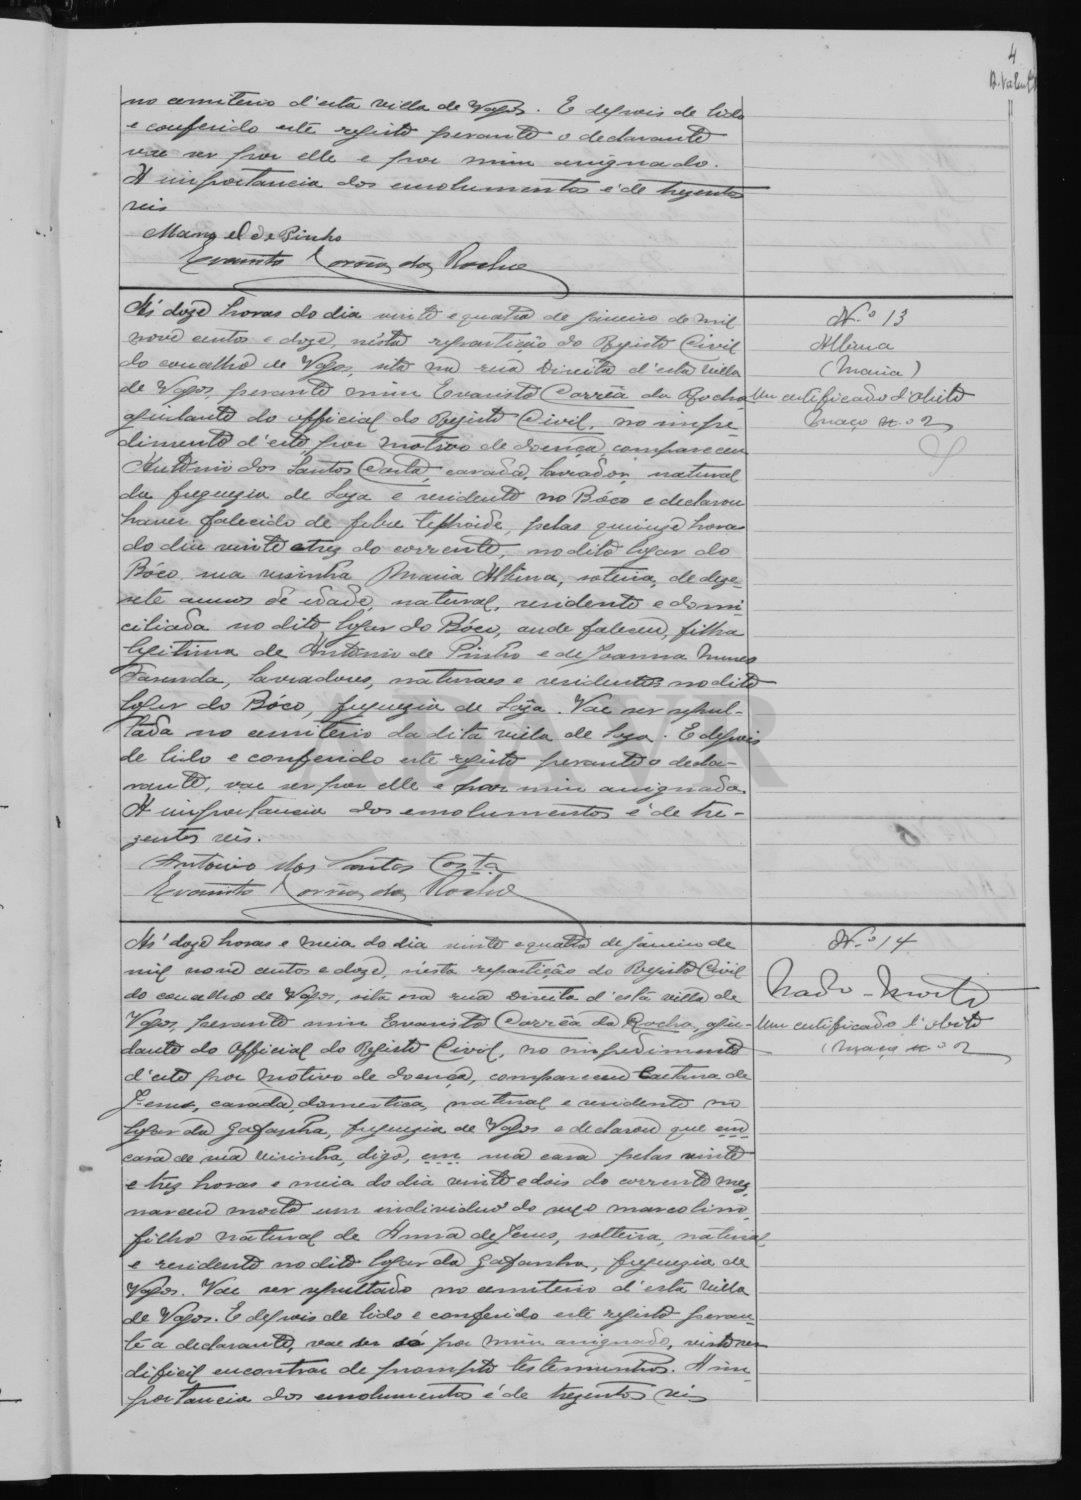 4
no cemiterio d'esta villa de Vagos. E depois de lido
e conferido este registo perante o declarante
vae ser por elle e por mim assignado.
A importancia dos emolumentos é de trezentos
reis
Manoel de Pinho
Evaristo Corrêa da Rocha
Ás doze horas do dia vinte e quatro de janeiro de mil
nove centos e doze, n'esta repartição do Registo Civil
do concelho de Vagos, sita na rua Direita d'esta villa
de Vagos, perante mim Evaristo Corrêa da Rocha
ajudante do official do Registo Civil, no impe-
dimento d'este por motivo de doença, compareceu
Antonio dos Santos Costa, casado, lavrador, natural
da freguezia de Soza e residente no Bôco e declarou
haver falecido de febre typhoide, pelas quinze horas
do dia vinte e trez do corrente, no dito logar do
Bôco, sua visinha Maria Albina, solteira, de deze-
sete annos de idade, natural, residente e domi-
ciliada no dito logar do Bôco, onde faleceu, filha
legitima de Antonio de Pinho e de Joanna Nunes
lavradores, naturaes e residentes no dito
logar do Bôco, freguezia de Soza. Vae ser sepul-
tada no cemiterio da dita villa de Soza. E depois
de lido e conferido este registo perante o decla-
rante, vae ser por elle e por mim assignado.
A importancia dos emolumentos é de tre-
zentos reis.
Antonio dos Santos Costa
Evaristo Corrêa da Rocha
N.º 13
Albina
(Maria)
Um certificado d'obito
Maço n.º 2
Ás doze horas e meia do dia vinte e quatro de janeiro de
mil nove centos e doze, n'esta repartição do Registo Civil
do concelho de Vagos, sita na rua Direita d'esta villa de
Vagos, perante mim Evaristo Corrêa da Rocha, aju-
dante do official do Registo Civil, no impedimento
d'este por motivo de doença, compareceu Caetana de
Jesus, casada, domestica, natural e residente no
logar da Gafanha, freguezia de Vagos e declarou que em
casa de sua visinha, digo, em sua casa pelas vinte
e trez horas e meia do dia vinte e dois do corrente mez,
nasceu morto um individuo do sexo masculino,
filho natural de Anna de Jesus, solteira, natural
e residente no dito logar da Gafanha, freguezia de
Vagos. Vae ser sepultado no cemiterio d'esta villa
de Vagos. E depois de lido e conferido este registo peran-
te a declarante, vae ser só por mim assignado, visto ser
dificil encontrar de prompto testemunhas. A im-
portancia dos emolumentos é de trezentos reis
N.º 14
Nado-morto
Um certificado d'obito
Maço n.º 2
ADAVR